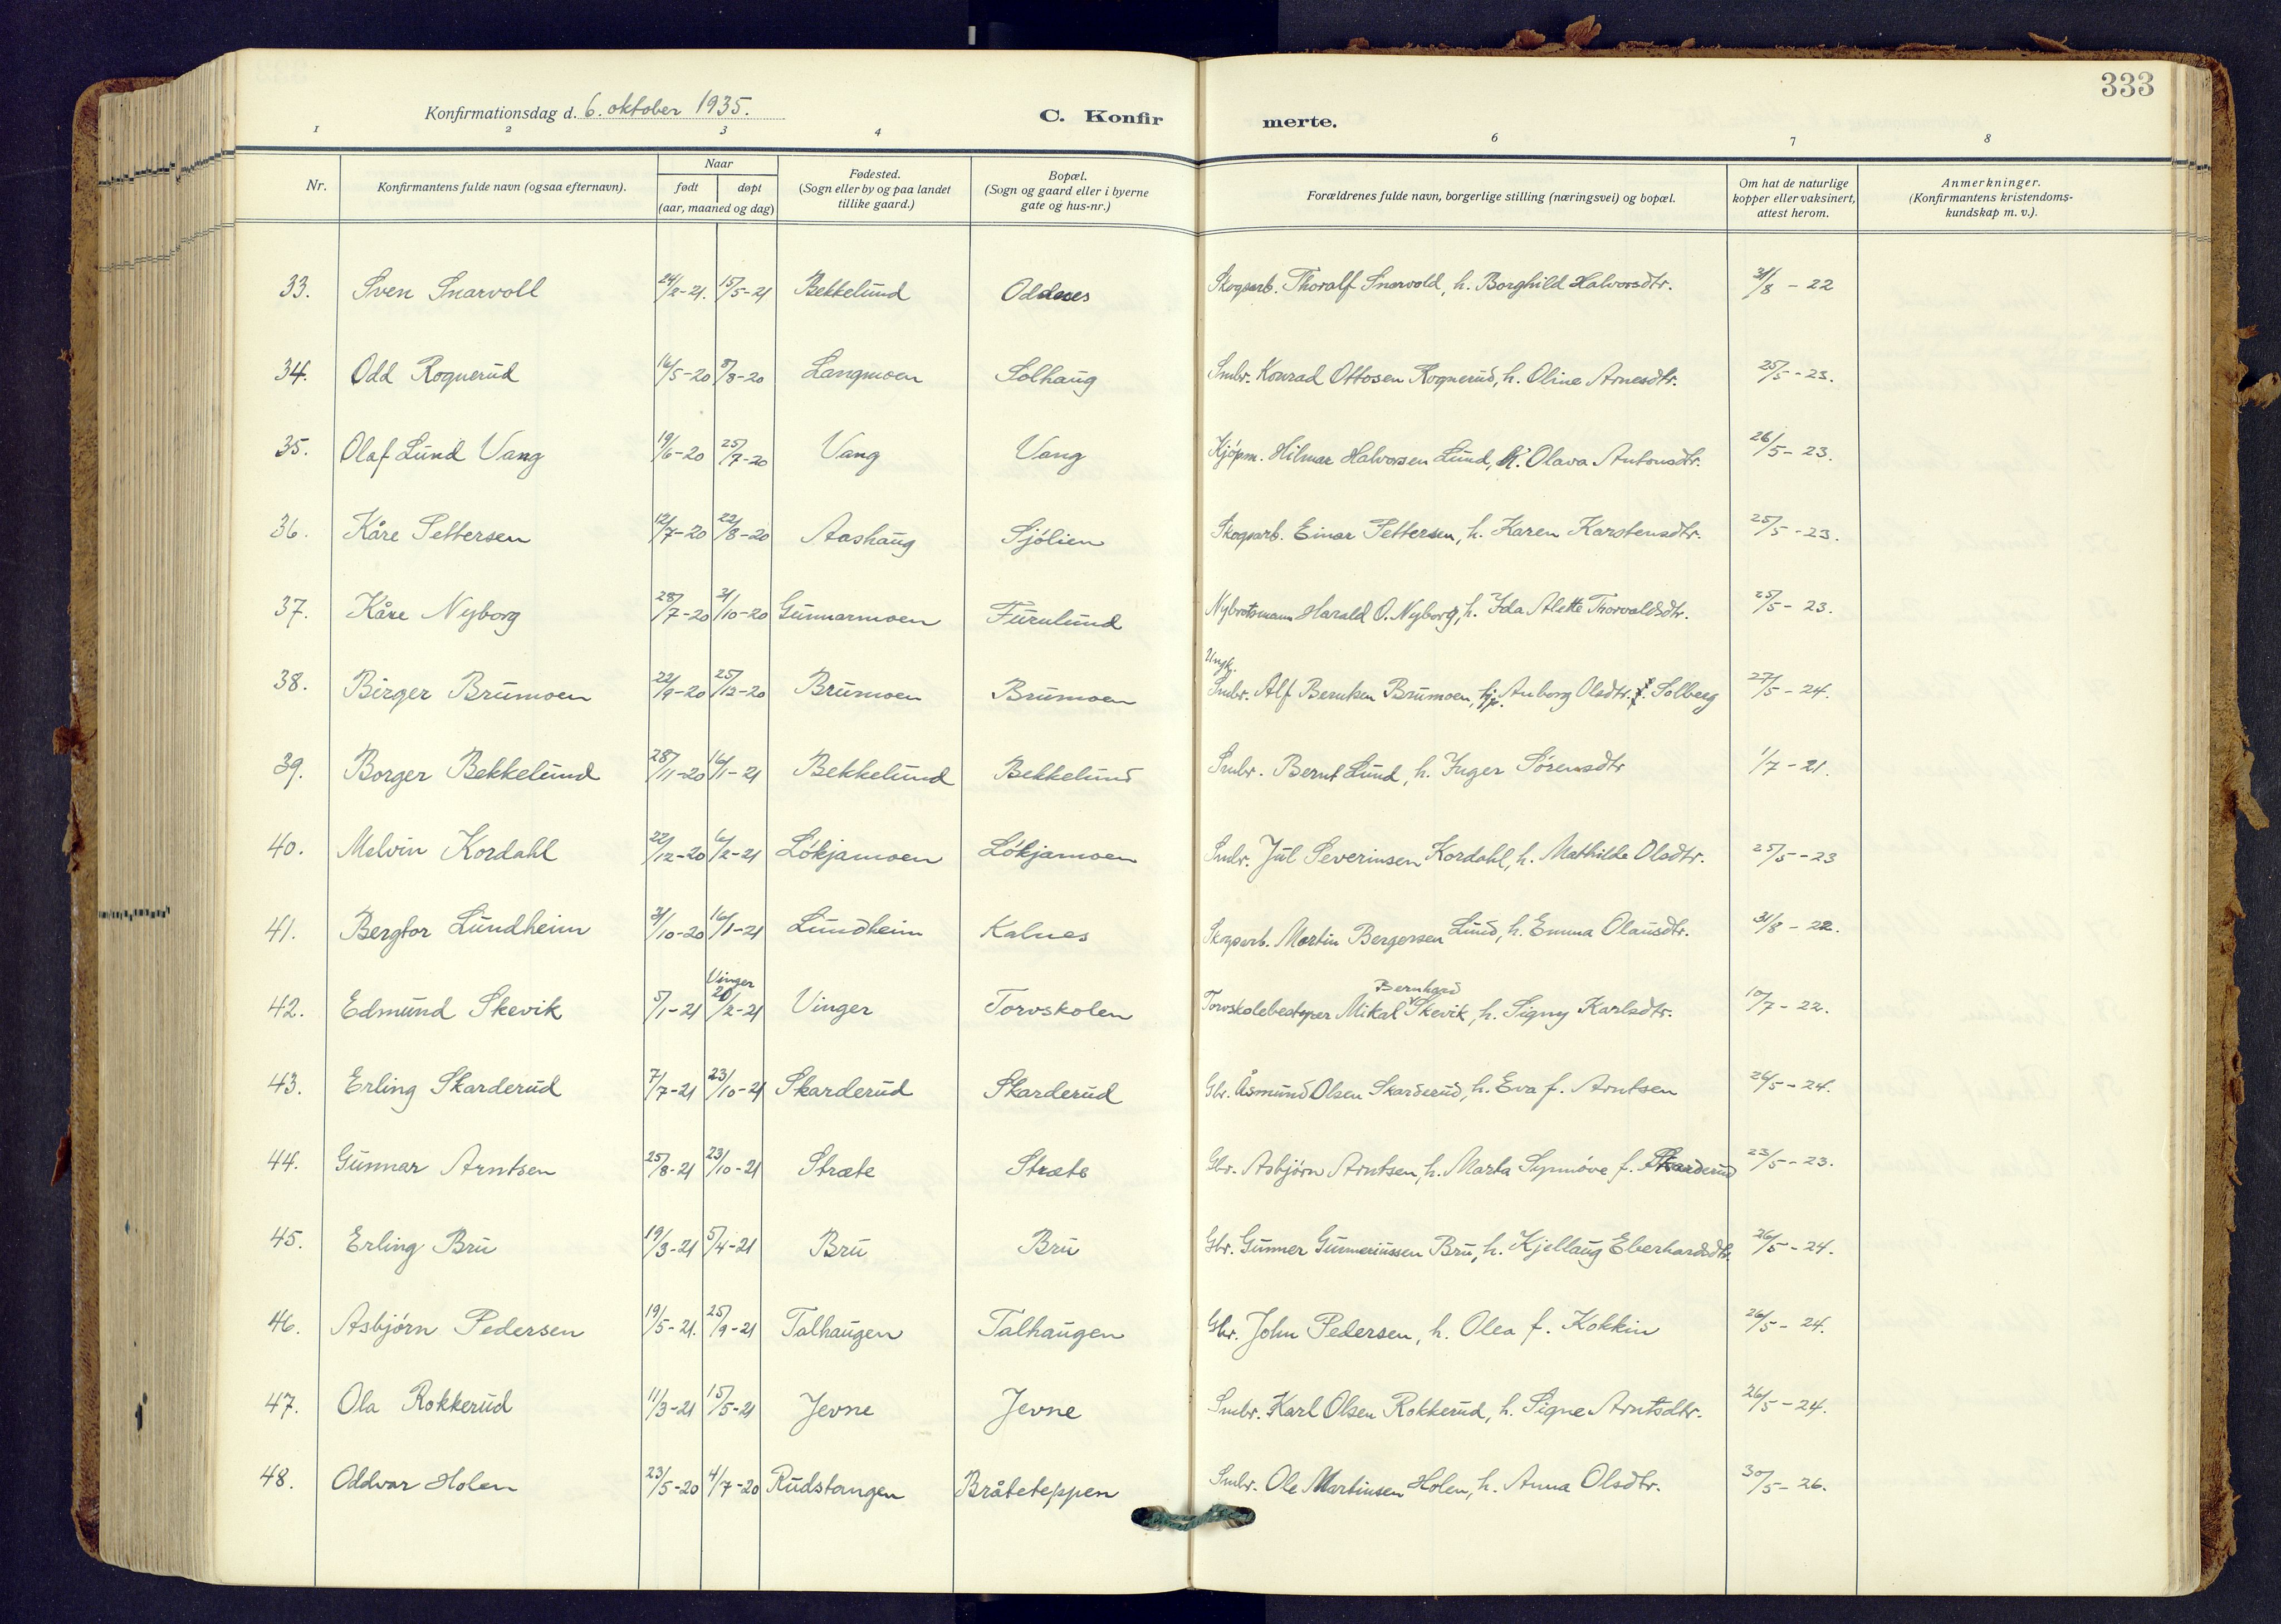 333
Konfirmationsdag d. 6. oktober 1935. C. Konfir merte.
1 2 3 4 6 7 8
Nr. Konfirmantens fulde navn (ogsaa efternavn). Naar født døpt (aar, maaned og dag) Fødested. (Sogn eller by og paa landet tillike gaard.) Bopæl. (Sogn og gaard eller i byerne gate og hus-nr.) Forældrenes fulde navn, borgerlige stilling (næringsvei) og bopæl. Om hat de naturlige kopper eller vaksinert, attest herom. Anmerkninger. (Konfirmantens kristendoms-kundskap m. v.).
33. Sven Snarvoll 24/2-21. 15/5-21 Bekkelund Oddnes Skogsarb. Thoralf Snarvold, h. Borghild Halvorsdtr. 31/8 - 22
34. Odd Rognerud 16/5-20 8/8-20 Langmoen Solhaug Smbr. Konrad Ottosen Rognerud, h. Oline Arnesdtr. 25/5 - 23.
35. Olaf Lund Vang 19/6-20 25/7-20 Vang Vang Kjøpm. Hilmar Halvorsen Lund, h. Olava Antonsdtr. 26/5 - 23.
36. Kåre Pettersen 12/7-20 22/8-20 Aashaug Sjølien Skogsarb. Einar Pettersen, h. Karen Karstensdtr. 25/5 - 23.
37. Kåre Nyborg 28/7-20 31/10-20 Gunnarmoen Furulund Nybrotsmann Harald O. Nyborg, h. Ida Alette Thorvaldsdtr. 25/5 - 23.
38. Birger Brumoen 22/9-20 25/12-20 Brumoen Brumoen Ungk. Smbr. Alf Berntsen Brumoen, pr. Anborg Olsdtr. Solberg 27/5 - 24.
39. Borger Bekkelund 28/11-20 16/1-21 Bekkelund Bekkelund Smbr. Bernt Lund, h. Inger Sørensdtr 1/7 - 21.
40. Melvin Kordahl 22/12-20 6/2-21 Løkjamoen Løkjamoen Smbr. Jul Severinsen Kordahl, h. Mathilde Olsdtr. 25/5 - 23
41. Bergtor Lundheim 31/10-20 16/1-21 Lundheim Kalnes Skogsarb. Martin Bergersen Lund, h. Emma Olausdtr. 31/8 - 22.
42. Edmund Skevik 5/1-21 Vinger 20/2-21 Vinger Torvskolen Torvskolebestyrer Mikal Bernhard Skevik, h. Signy Karlsdtr. 10/7 - 22.
43. Erling Skarderud 7/7-21 23/10-21 Skarderud Skarderud Gbr. Åsmund Olsen Skarderud, h. Eva f. Arntsen 26/5 - 24.
44. Gunnar Arntsen 25/8-21 23/10-21 Stræte Stræte Gbr. Asbjørn Arntsen, h. Marta Synnøve f. Skarderud 23/5 - 23.
45. Erling Bru 19/3-21 5/4-21 Bru Bru Gbr. Gunner Gunneriussen Bru, h. Kjellaug Eberhardsdtr. 26/5 - 24.
46. Asbjørn Pedersen 19/5-21. 25/9-21 Talhaugen Talhaugen Gbr. John Pedersen, h. Olea f. Kokkin 26/5 - 24.
47. Ola Rokkerud 11/3-21 15/5-21 Jevne Jevne Smbr. Karl Olsen Rokkerud, h. Signe Arntsdtr. 26/5 - 24.
48. Oddvar Holen 23/5-20 4/7-20 Rudstangen Bråteteppen Smbr. Ole Martinsen Holen, h. Anna Olsdtr. 30/5 - 26.